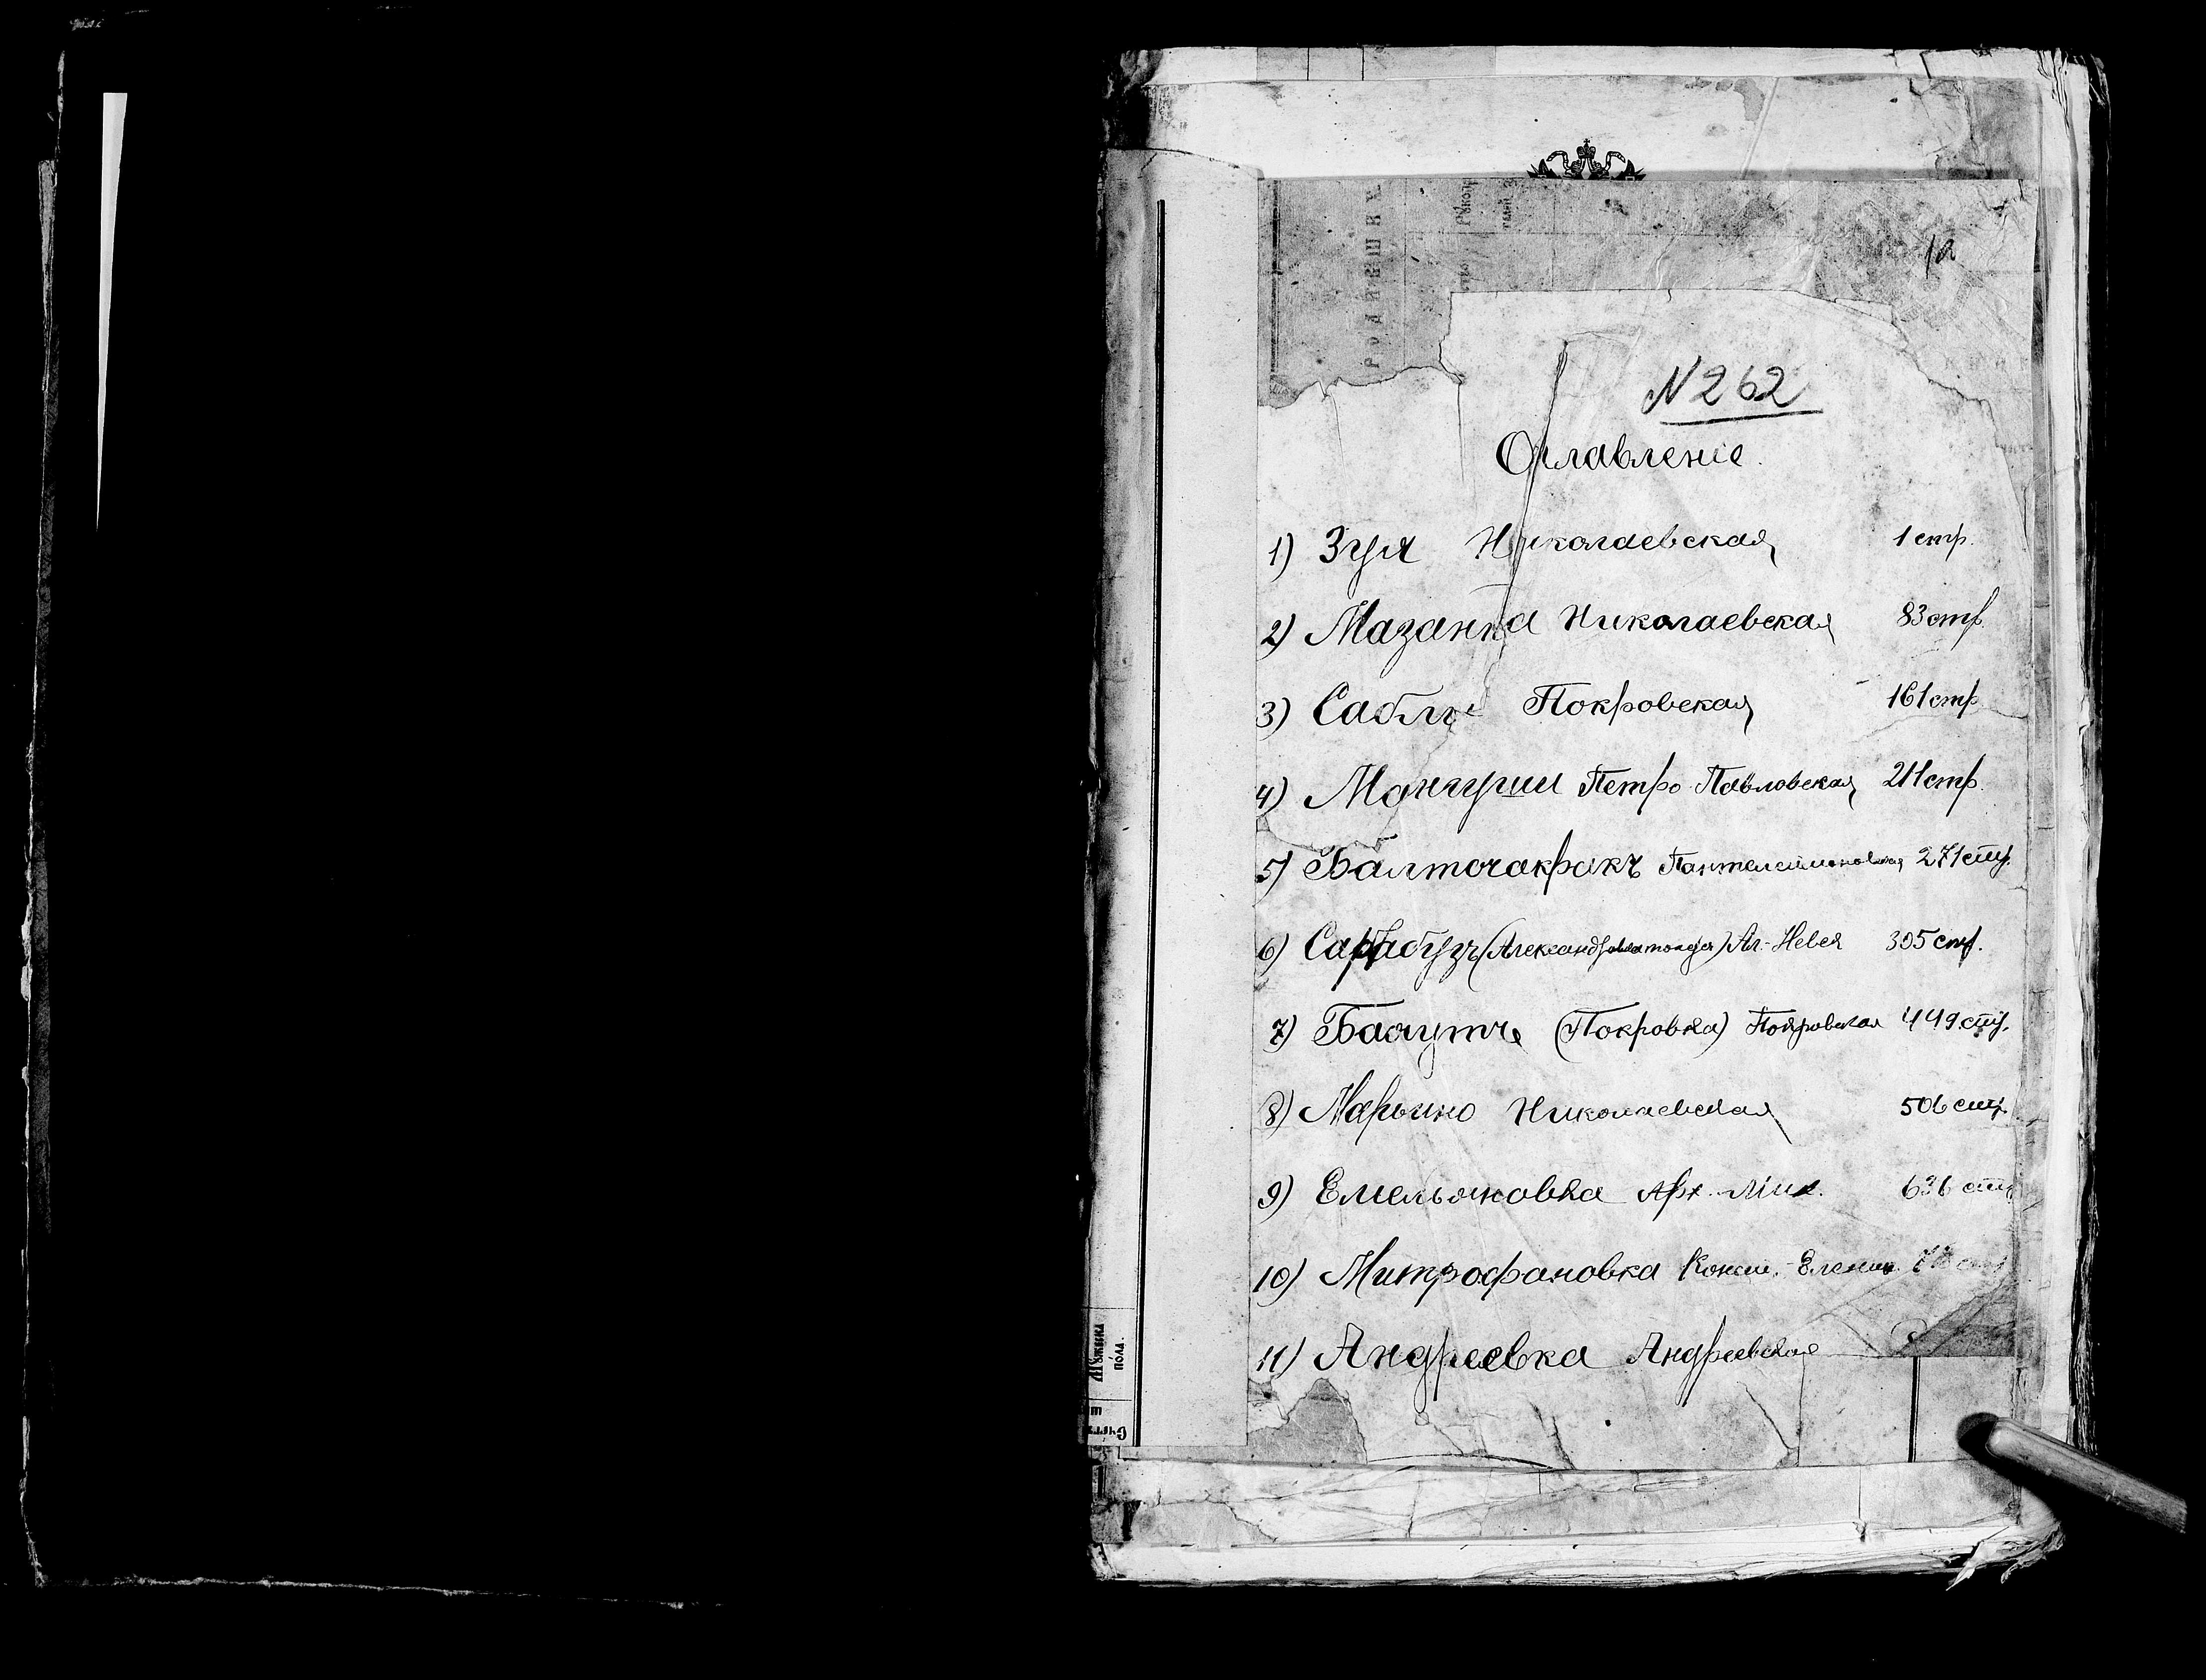 1а
N 262
Оглавленіе.
1) Зуя Николаевская 1 стр.
2) Мазанка Николаевская 83 стр.
3) Саблы Покровская 161 стр
4) Мангуши Петро-Павловская 211 стр.
5) Балточакракъ Пантелеимоновская 271 стр.
6) Сарабузъ (Александро) Ал-Невск 305 стр.
7) Бачутче (Покровка) Покровская 449 стр.
8) Марьино Николаевская 506 стр.
9) Емельяновка Арх. Мих. 636 стр
10) Митрофановка Конст.-Еленин.
11) Андреевка Андреевская